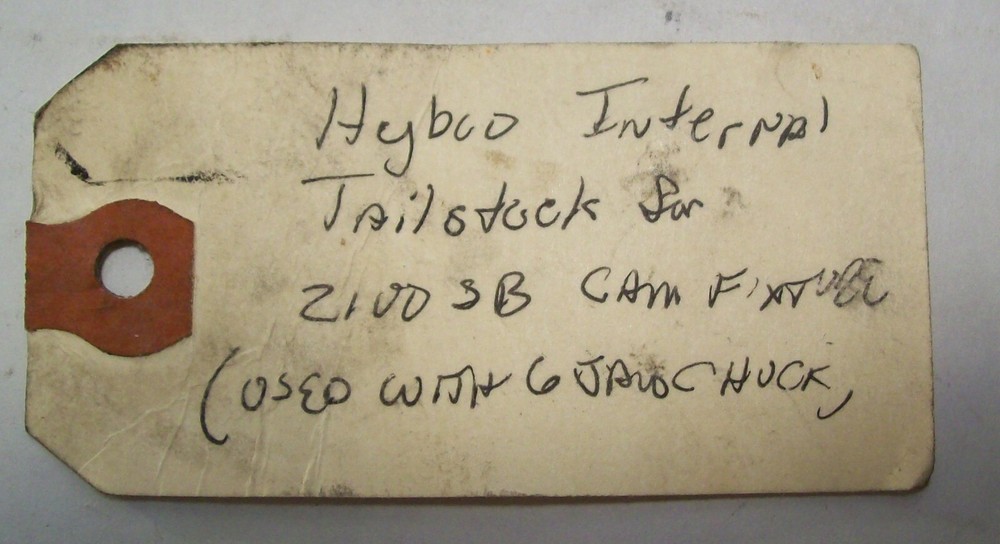 Hybco Internal
Tailstock for
2100 SB CAM FIXTURE
(USED WITH 6 JAW CHUCK)